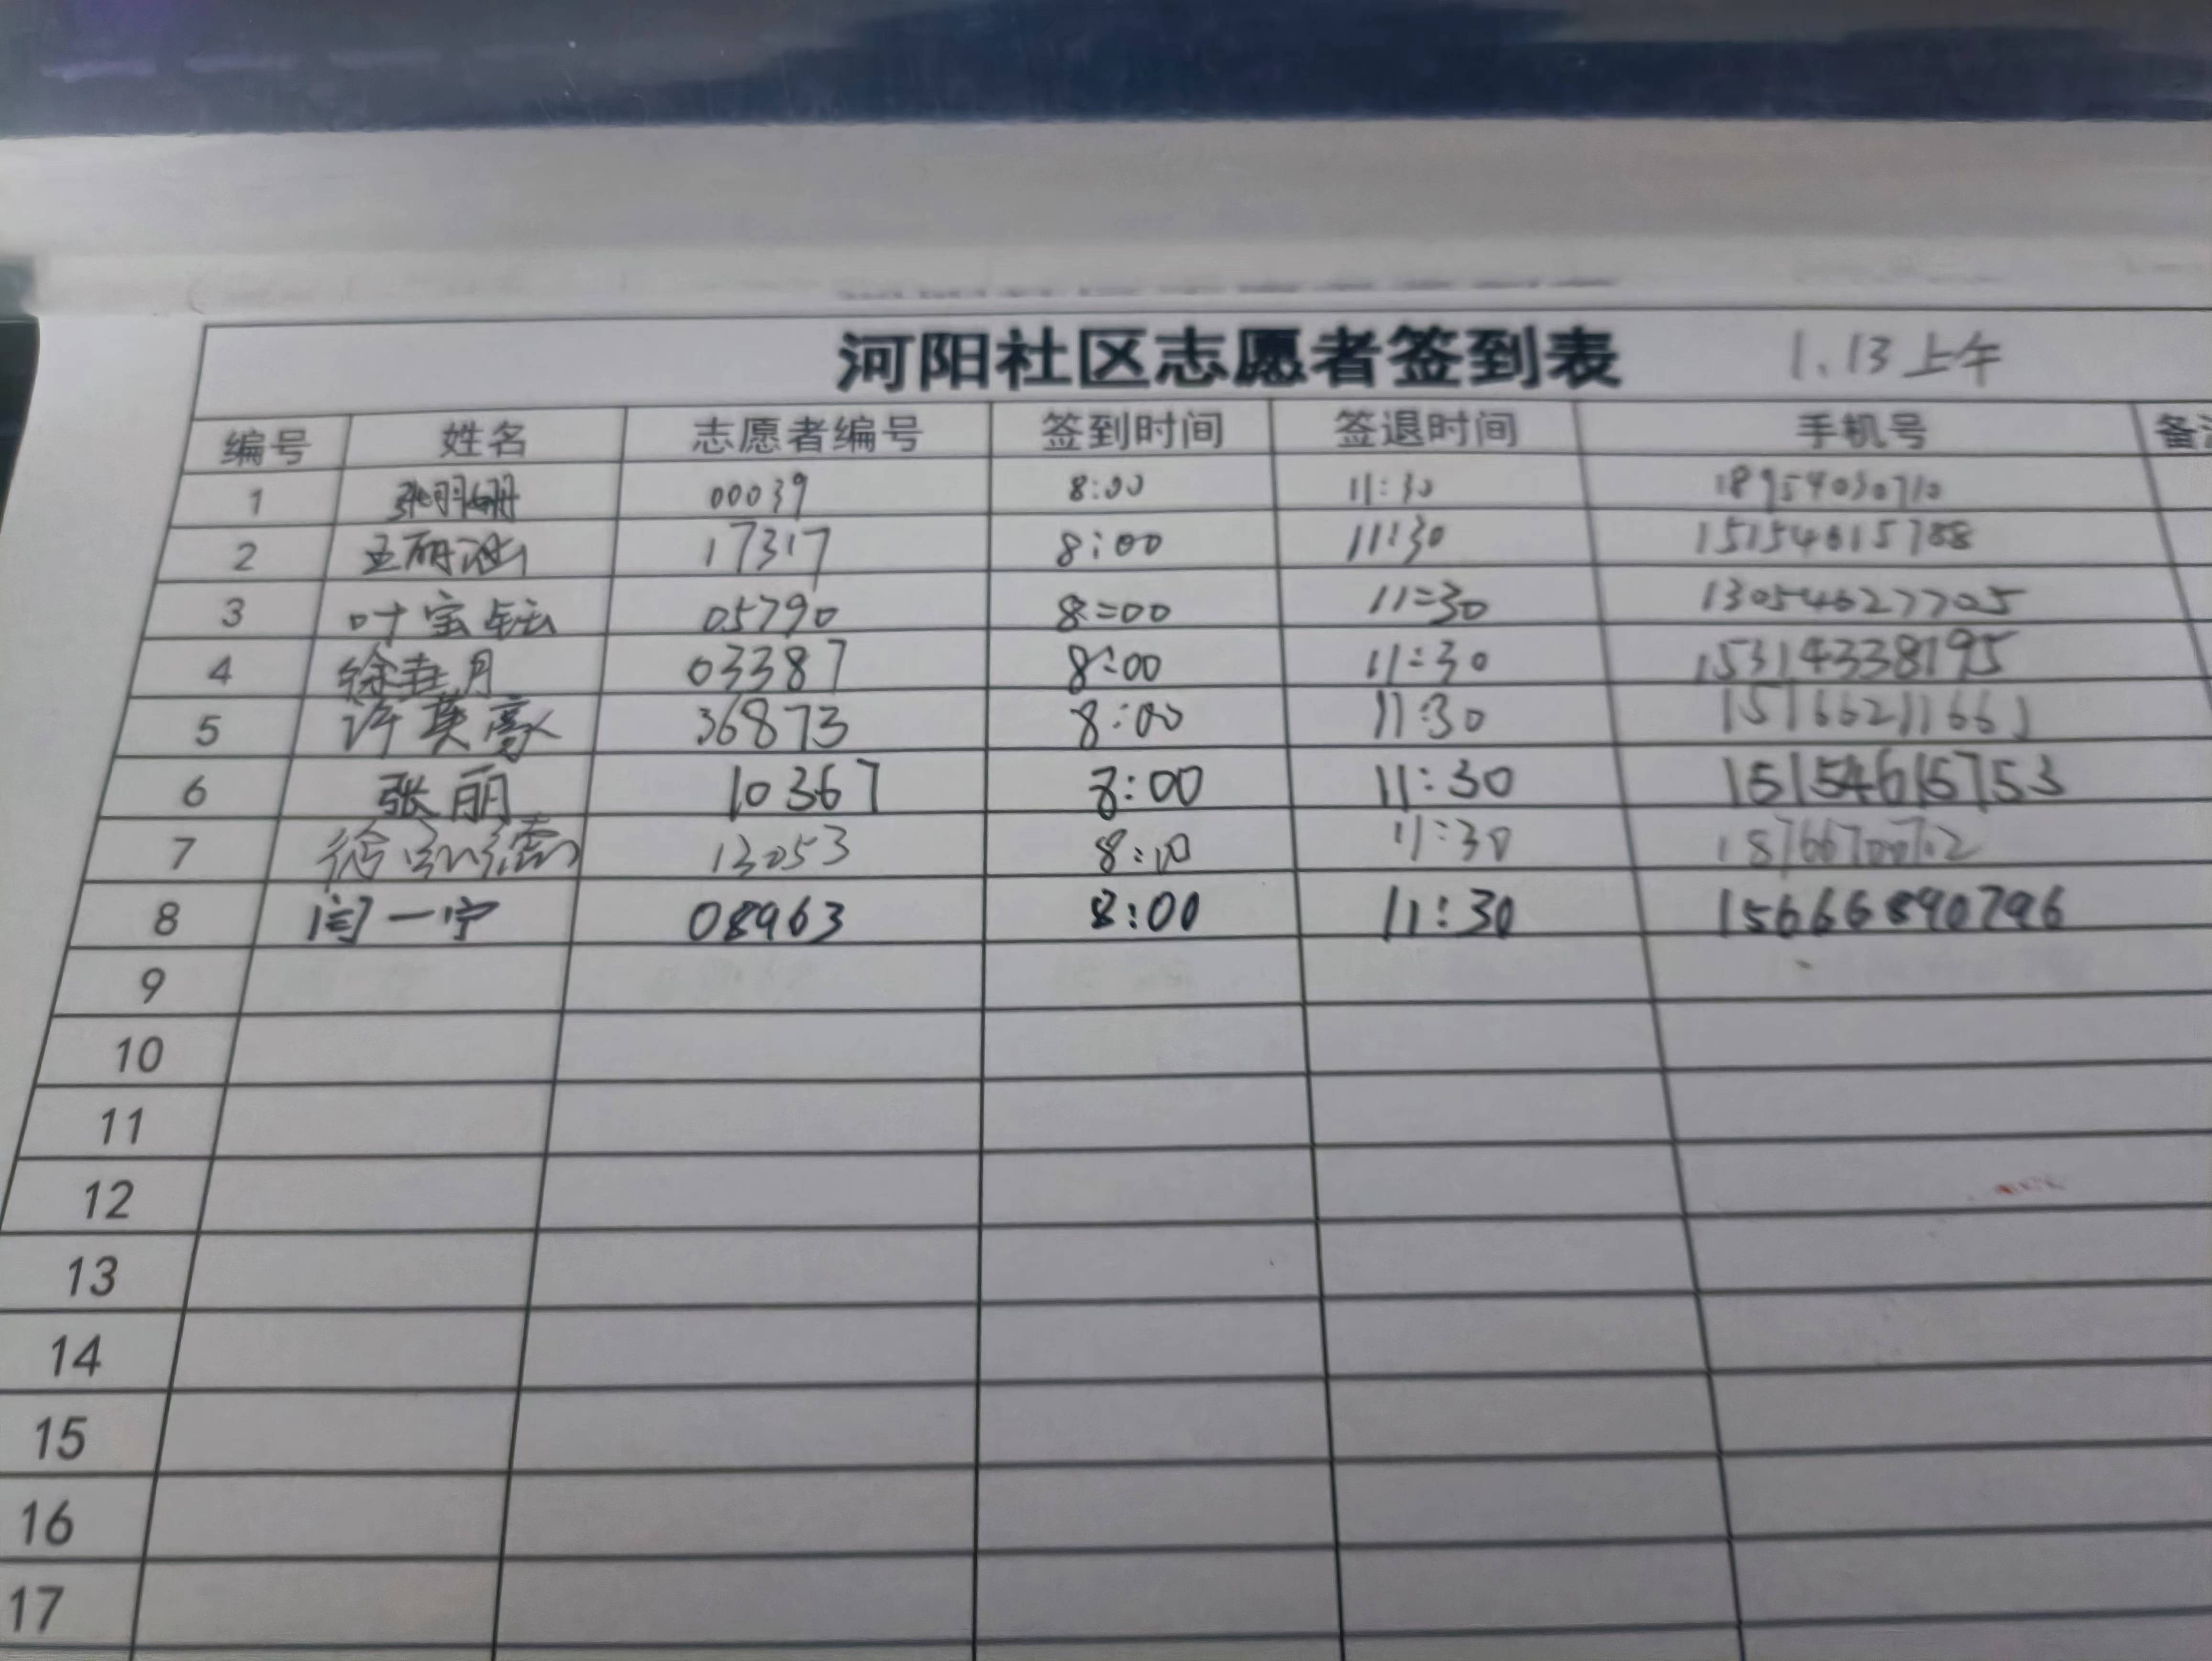 河阳社区志愿者签到表 1.13上午
编号 姓名 志愿者编号 签到时间 签退时间 手机号 备注
1 00039 8:00 11:30 18954030710
2 17317 8:00 11:30 15154615788
3 叶宝 05790 8:00 11:30 13054627705
4 徐 月 03387 8:00 11:30 15314338195
5 许英豪 36873 8:00 11:30 15166211661
6 张丽 10367 8:00 11:30 15154615753
7 13053 8:00 11:30
8 闫一宁 08963 8:00 11:30 15666890796
9
10
11
12
13
14
15
16
17